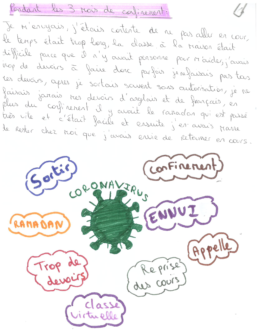 Pendant les 3 mois de confinement
Je m'ennuyais, j'étais contente de ne pas aller en cour,
le temps était trop long, la classe à la maison était
difficile parce que il n'y avait personne par m'aider, j'avais
trop de devoirs à faire donc parfois je faisais pas tous
les devoirs, après je sortais souvent sans autorisation, je ne
faisais jamais mes devoirs d'anglais et de français, en
plus du confinement il y avait le ramadan qui est passé
très vite et c'était facile et ensuite j'en avais marre
de rester chez moi que j'avais envie de retourner en cours.
Sortir
Confinement
CORONAVIRUS
RAMADAN
ENNUI
Appelle
Trop de
devoirs
Reprise
des cours
Classe
virtuelle